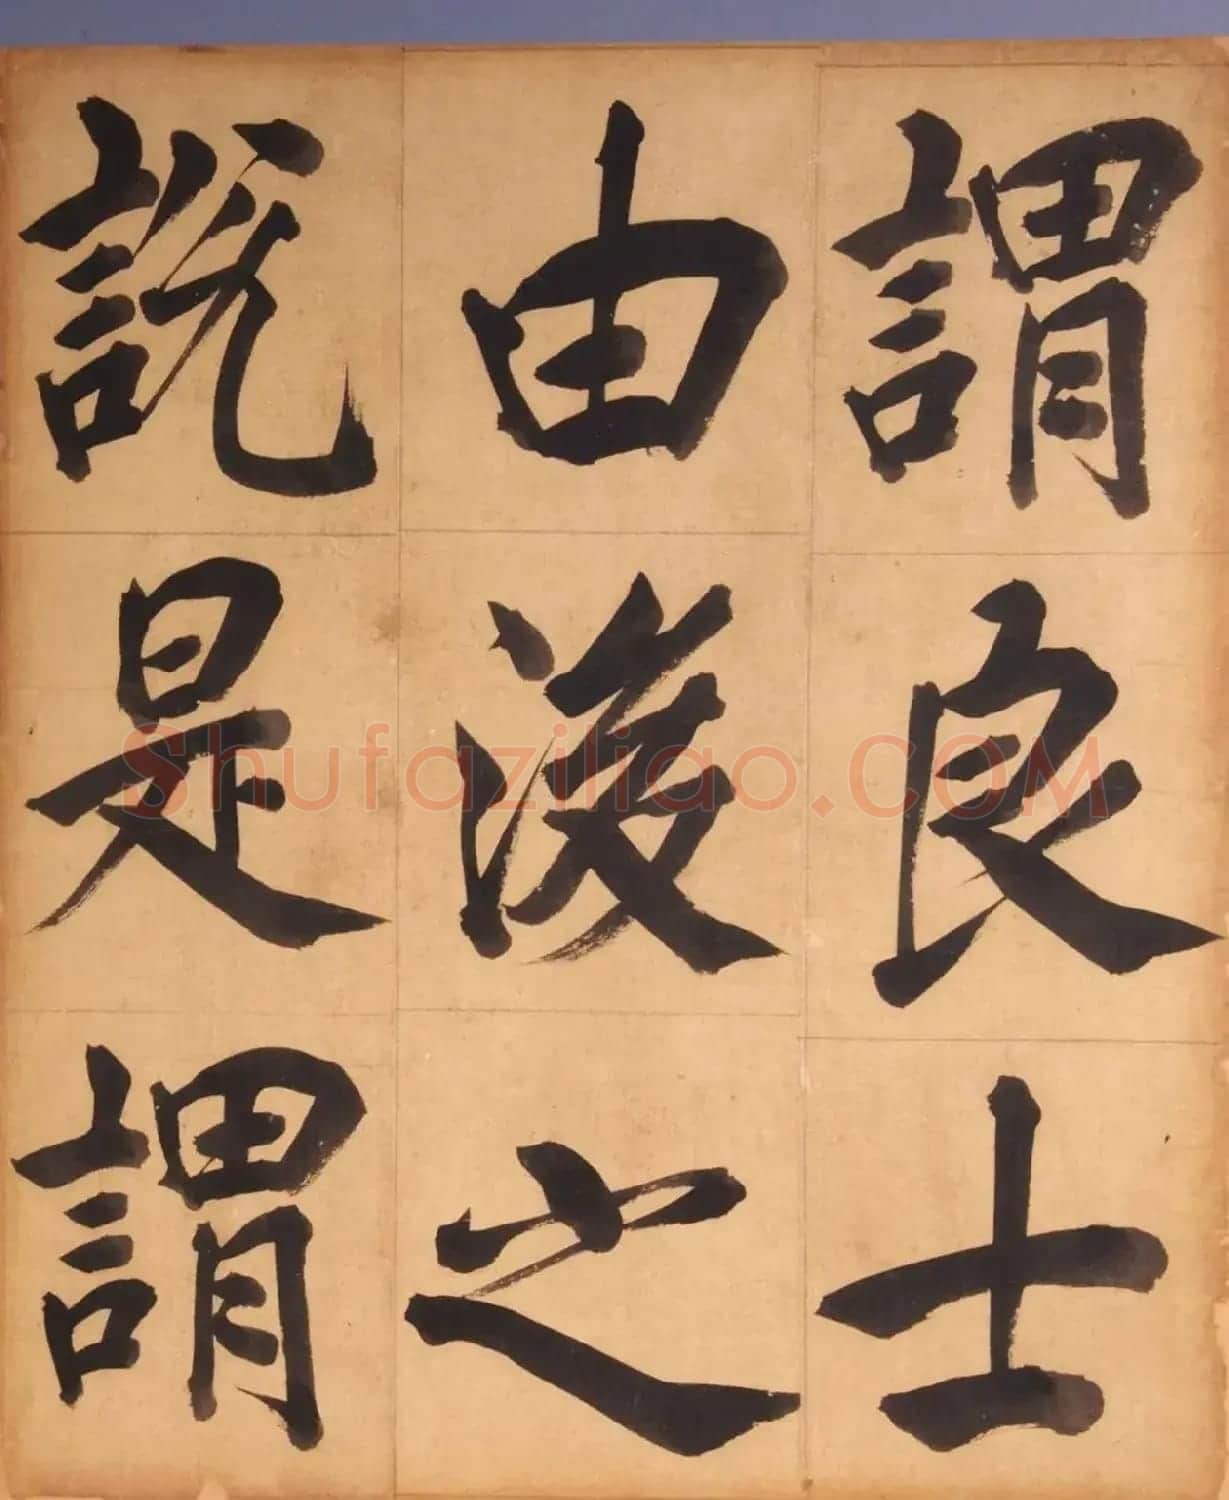 謂良士
由浚之
説是謂
Shufaziliao.COM